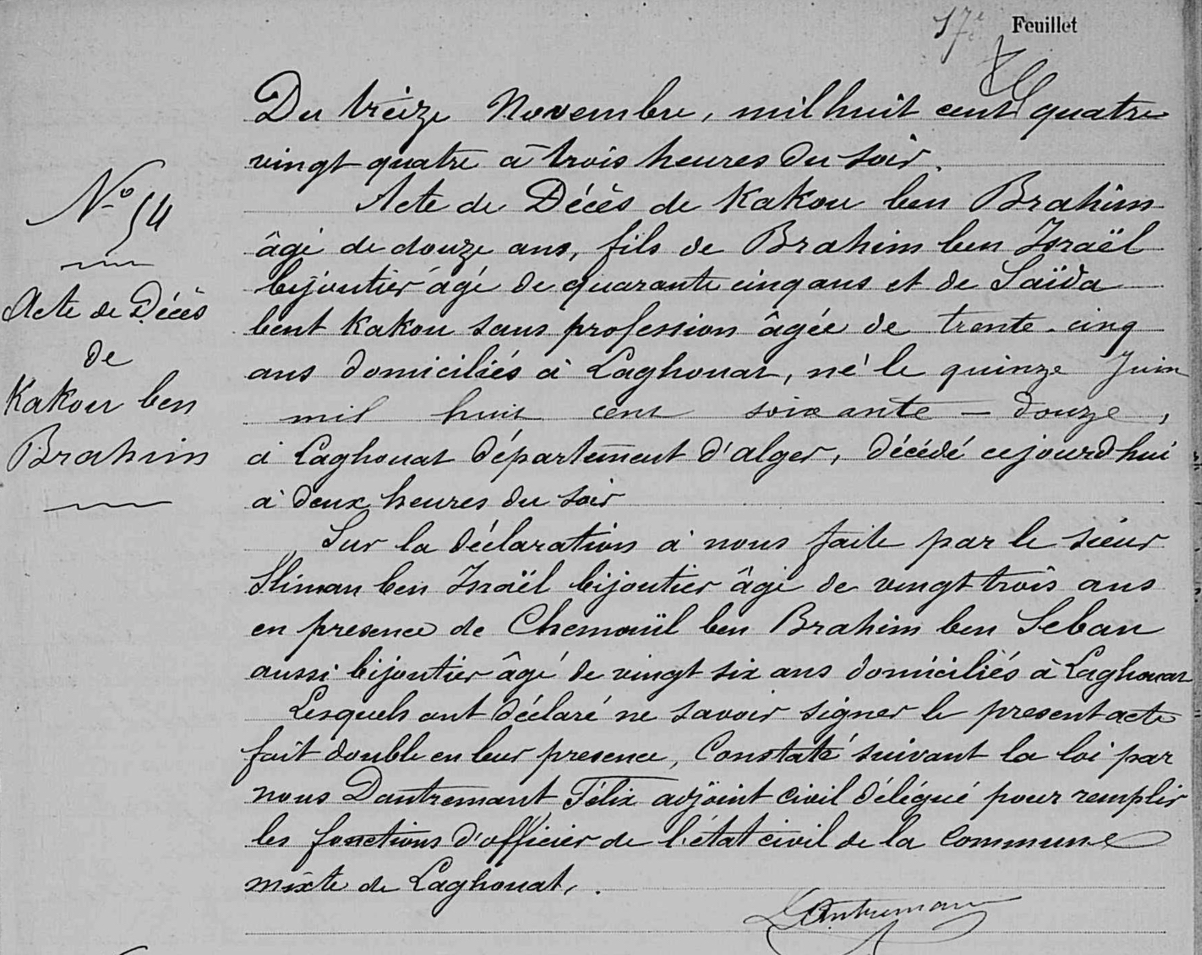 17e Feuillet
Du treize Novembre, mil huit cent quatre
vingt quatre à trois heures du soir.
Acte de Décès de Kakou ben Brahim
âgé de douze ans, fils de Brahim ben Israël
bijoutier âgé de quarante cinq ans et de Saïda
bent Kakou sans profession âgée de trente-cinq
ans domiciliés à Laghouat, né le quinze Juin
mil huit cent soixante - douze,
à Laghouat département d'alger, décédé cejourd'hui
à deux heures du soir
Sur la déclaration à nous faite par le sieur
Sliman ben Israël bijoutier âgé de vingt trois ans
en presence de Chemouïl ben Brahim ben Seban
aussi bijoutier âgé de vingt six ans domiciliés à Laghouat
Lesquels ont déclaré ne savoir signer le present acte
fait double en leur presence, Constaté suivant la loi par
nous Dantremant Félix adjoint civil délégué pour remplir
les fonctions d'officier de l'état civil de la Commune
mixte de Laghouat.
Dantremant
No 54
Acte de Décès
de
Kakou ben
Brahim